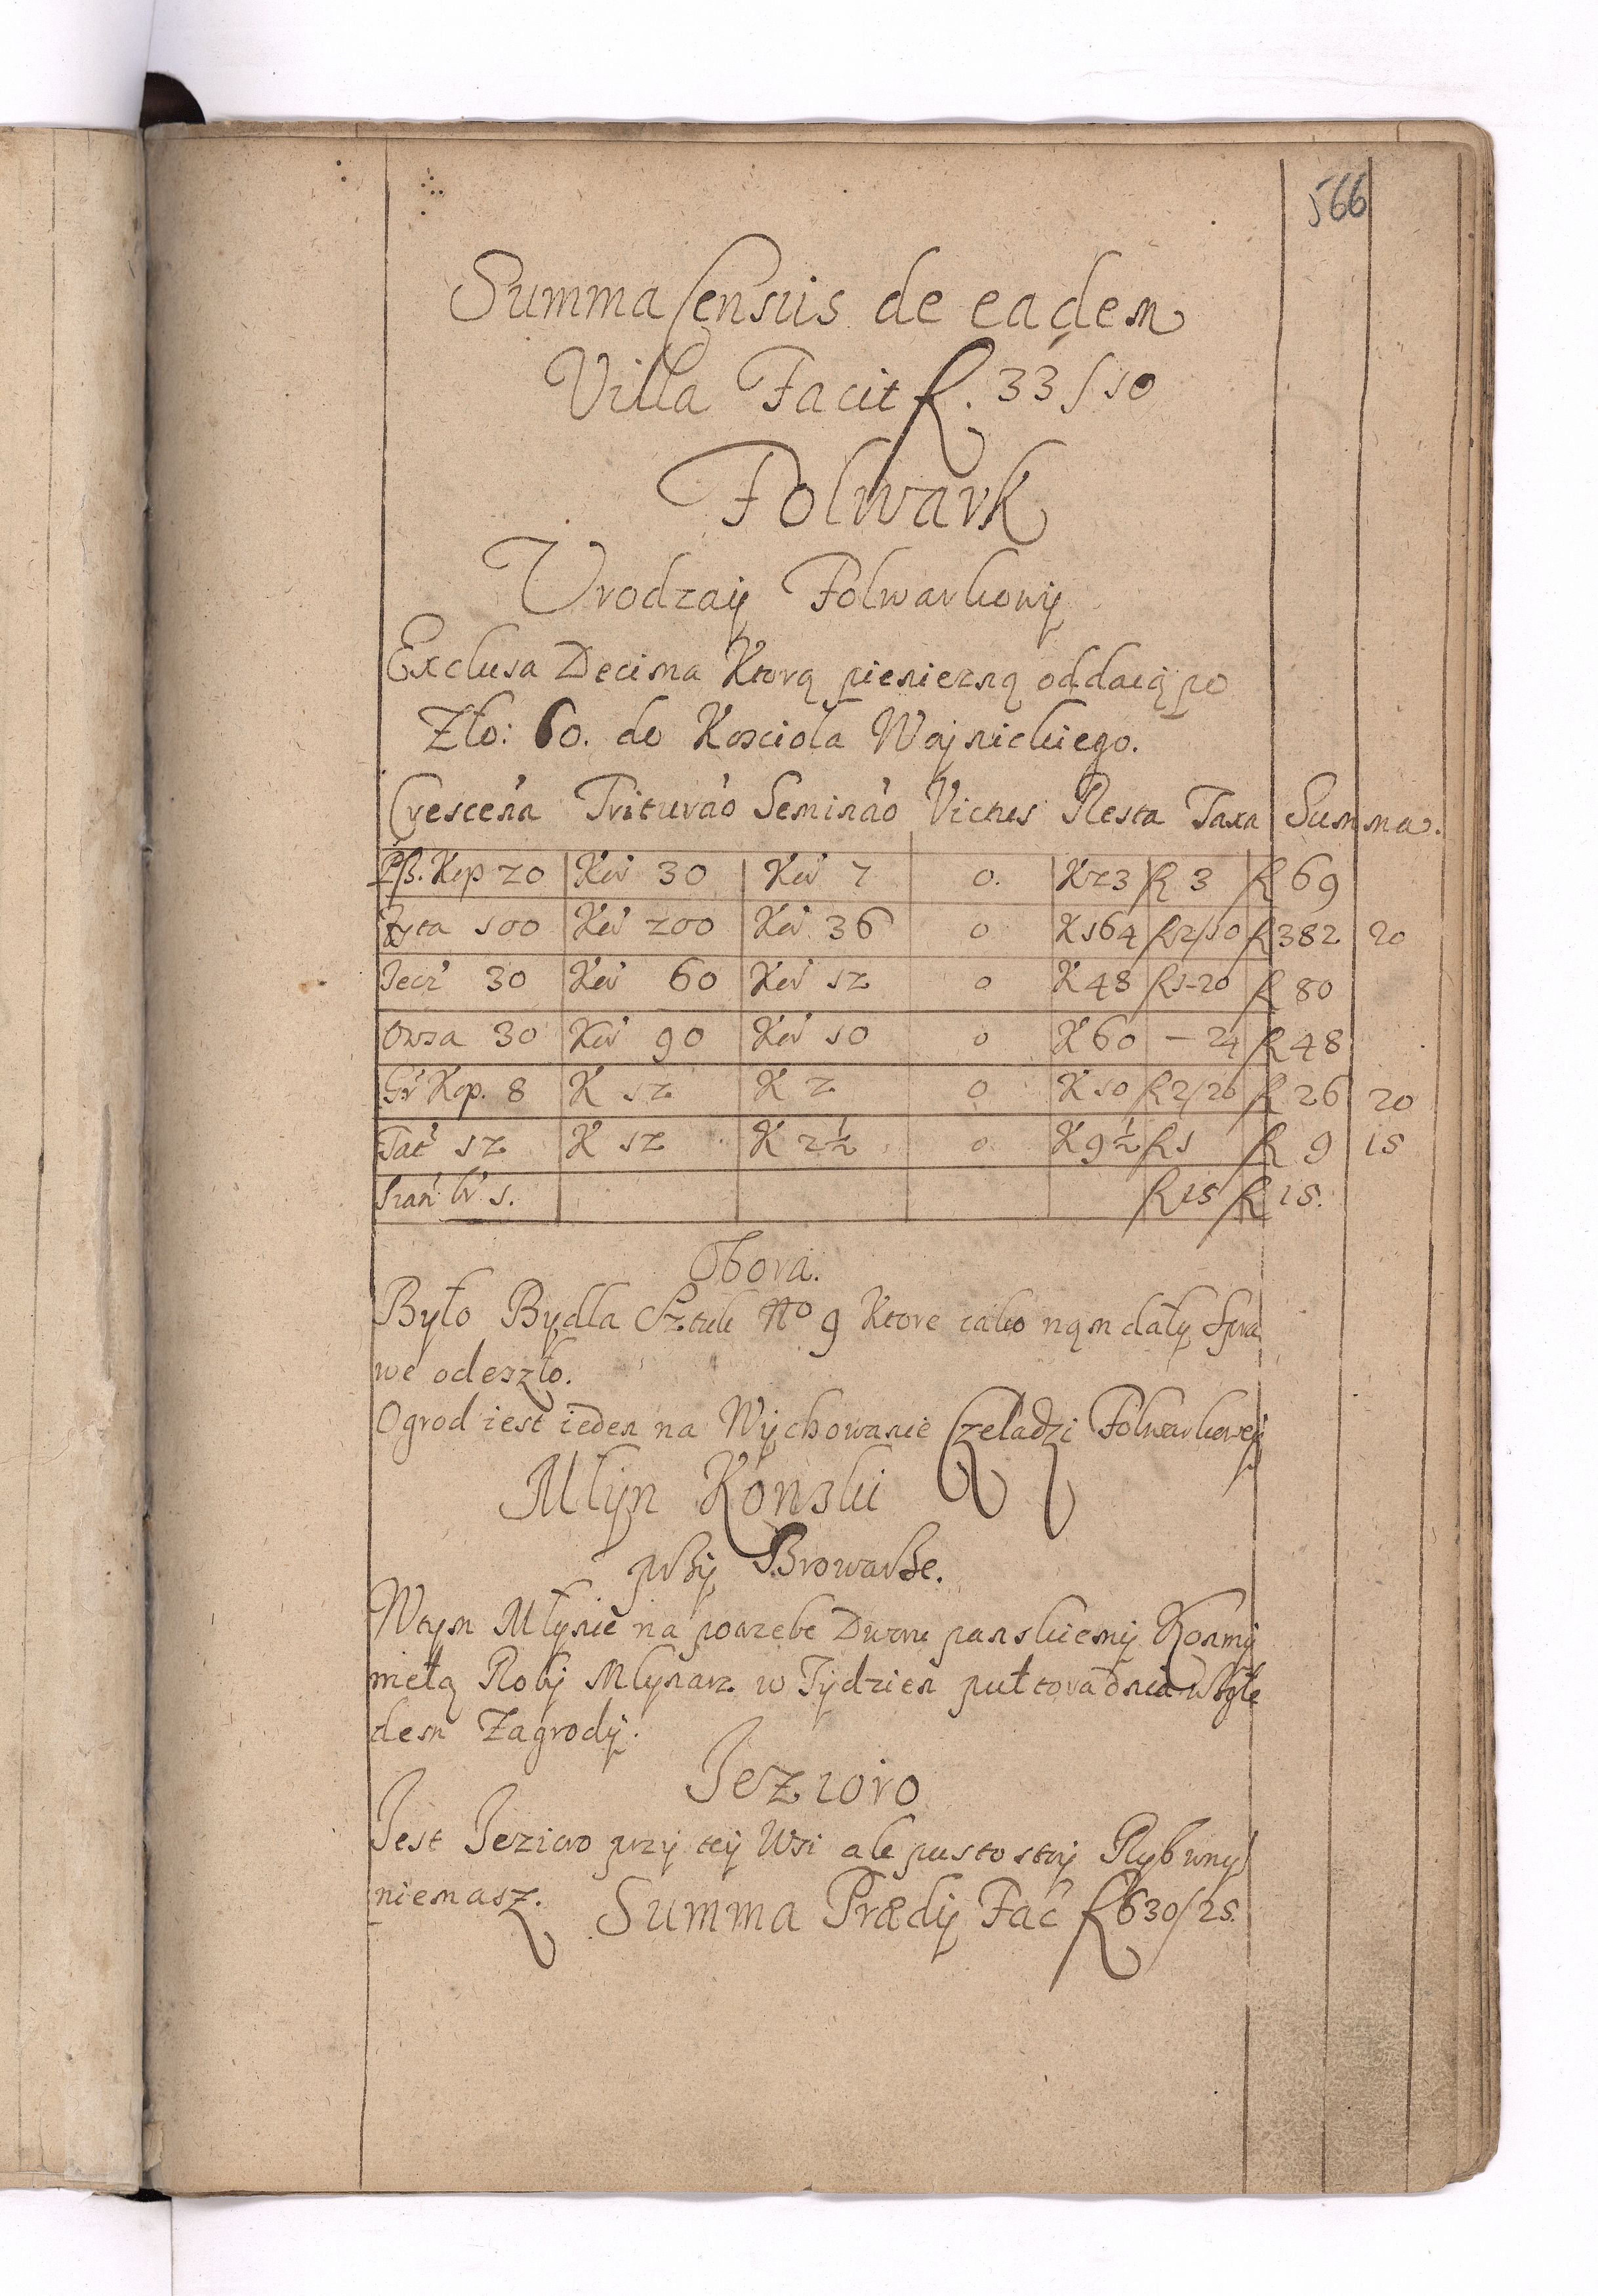 566
Summa Census de eadem
Villa Facit fl. 33 / 10
Folwark
Urodzaij Folwarkowij
Exclusa Decima Ktorą pieniezną oddaią po
Zło: 60. do Kosciola Wojnickiego.
Crescen̄a Triturāo Semināo Victus Resta Taxa Summa.
Pß. Kop 20 Kor̄ 30 Kor̄ 7 0. K 23 fl 3 fl 69
Zyta 100 Kor̄ 200 Kor̄ 36 0 K 164 fl 2/10 fl 382 20
Jecz̄ 30 Kor̄ 60 Kor̄ 12 0 K 48 fl 1-20 fl 80
Owsa 30 Kor̄ 90 Kor̄ 10 0 K 60 – 24 fl 48
Gr̄ Kop. 8 K 12 K 2 0 K 10 fl 2/20 fl 26 20
Tat̄ 12 K 12 K 2½ 0 K 9½ fl 1 fl 9 15
Sian̄ 1. fl 15 fl 15.
Obora.
Było Bydla Sztuk No 9 Ktore iako nąm dały Spra
we odeszło.
Ogrod iest ieden na Wychowanie Czeladzi Folwarkoweij
Mlyn Konski
przij Browarze.
Wtym Młynie na potrzebe Dworu panskiemij Konmij
mełą Robij Mlynarz w Tydzien pułtora dnia Wzglę
dem Zagrodij.
Jezioro
Jest Jezioro przij teij Wsi ale pusto stoij Ryb wnij
niemasz. Summa Prædij Fac̄ fl 630/25.